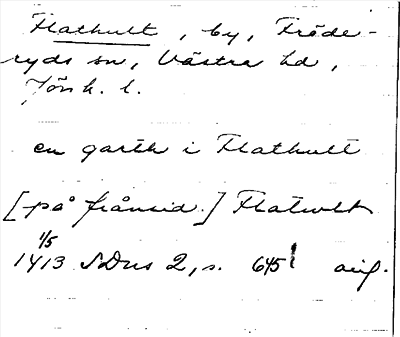 Flathult, by, Fröde-
ryds sn, Västra hd,
Jönk. l.
en garth i Flathult
[på frånsid.] Flatwlt
1/5
1413 SDns 2, s. 645